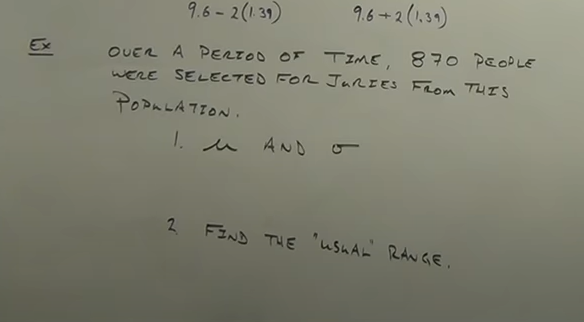 9.6 - 2(1.39) 9.6 + 2(1.39)
Ex OVER A PERIOD OF TIME, 870 PEOPLE
WERE SELECTED FOR JURIES FROM THIS
POPULATION.
1. μ AND σ
2. FIND THE "USUAL" RANGE.